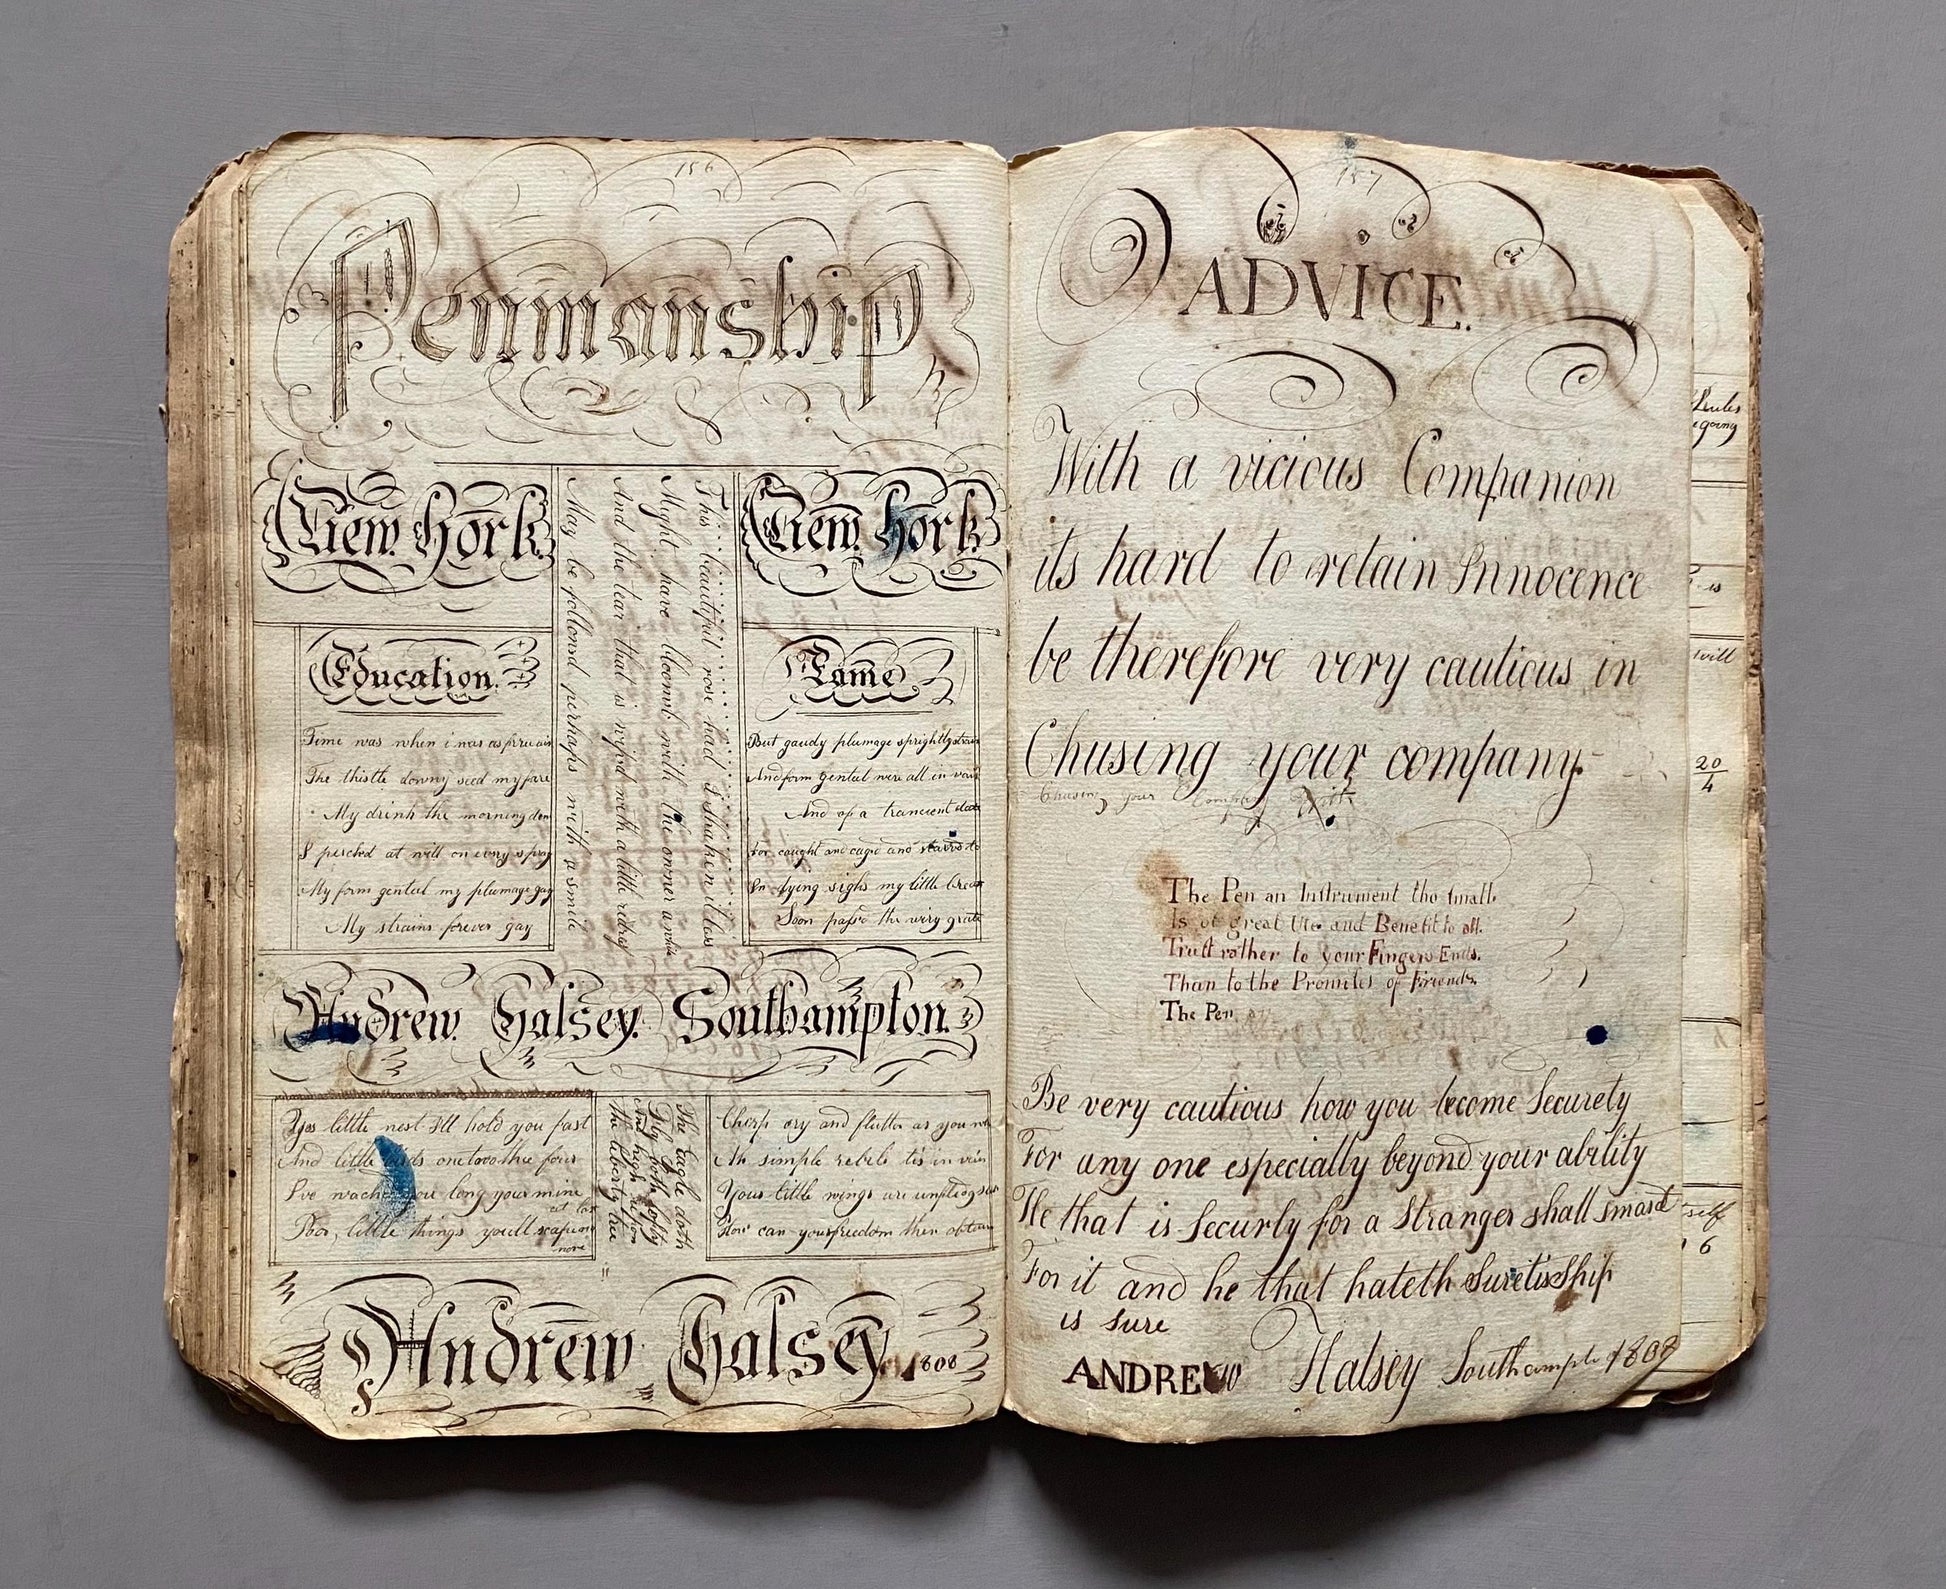 156
Penmanship
New York.
New York.
This beautiful rose had I shaken it less
Might have bloom'd with the owner a while
And the tear that is wip'd with a little
May be follow'd perhaps with a smile
Education.
Time was when i was as free as air
The thistle downy seed my fare
My drink the morning dew
I perched at will on every spray
My form genteel my plumage gay
My strains forever gay
Fame
But gaudy plumage sprightly strain
And form genteel were all in vain
And of a trancient date
For caught and cag'd and starv'd to
In dying sighs my little breath
Soon pass'd the wiry grate
Andrew. Halsey. Southampton.
Yes little nest I'll hold you fast
And little birds one two three four
I've wached you long your mine
at last
Poor, little things you'll scape
more
The Eagle doth
Fly both softly
And high upon
the liberty tree
Cherp cry and flutter as you will
Ah simple rebels tis in vain
Your little wings are unfledg'd
How can your freedom then obtain
Andrew Halsey 1808
157
ADVICE.
With a vicious Companion
its hard to retain Innocence
be therefore very cautious in
Chusing your company.
Chusing your Company With
The Pen an Instrument tho small.
Is of great Use and Benefit to all.
Trust rather to your Fingers Ends.
Than to the Promises of Friends.
The Pen
Be very cautious how you become Securety
For any one especially beyond your ability
He that is Securly for a Stranger shall smart
For it and he that hateth Suretisship
is sure
ANDREW Halsey Southampto 1808
Rules
going
is
will
20
4
self
6